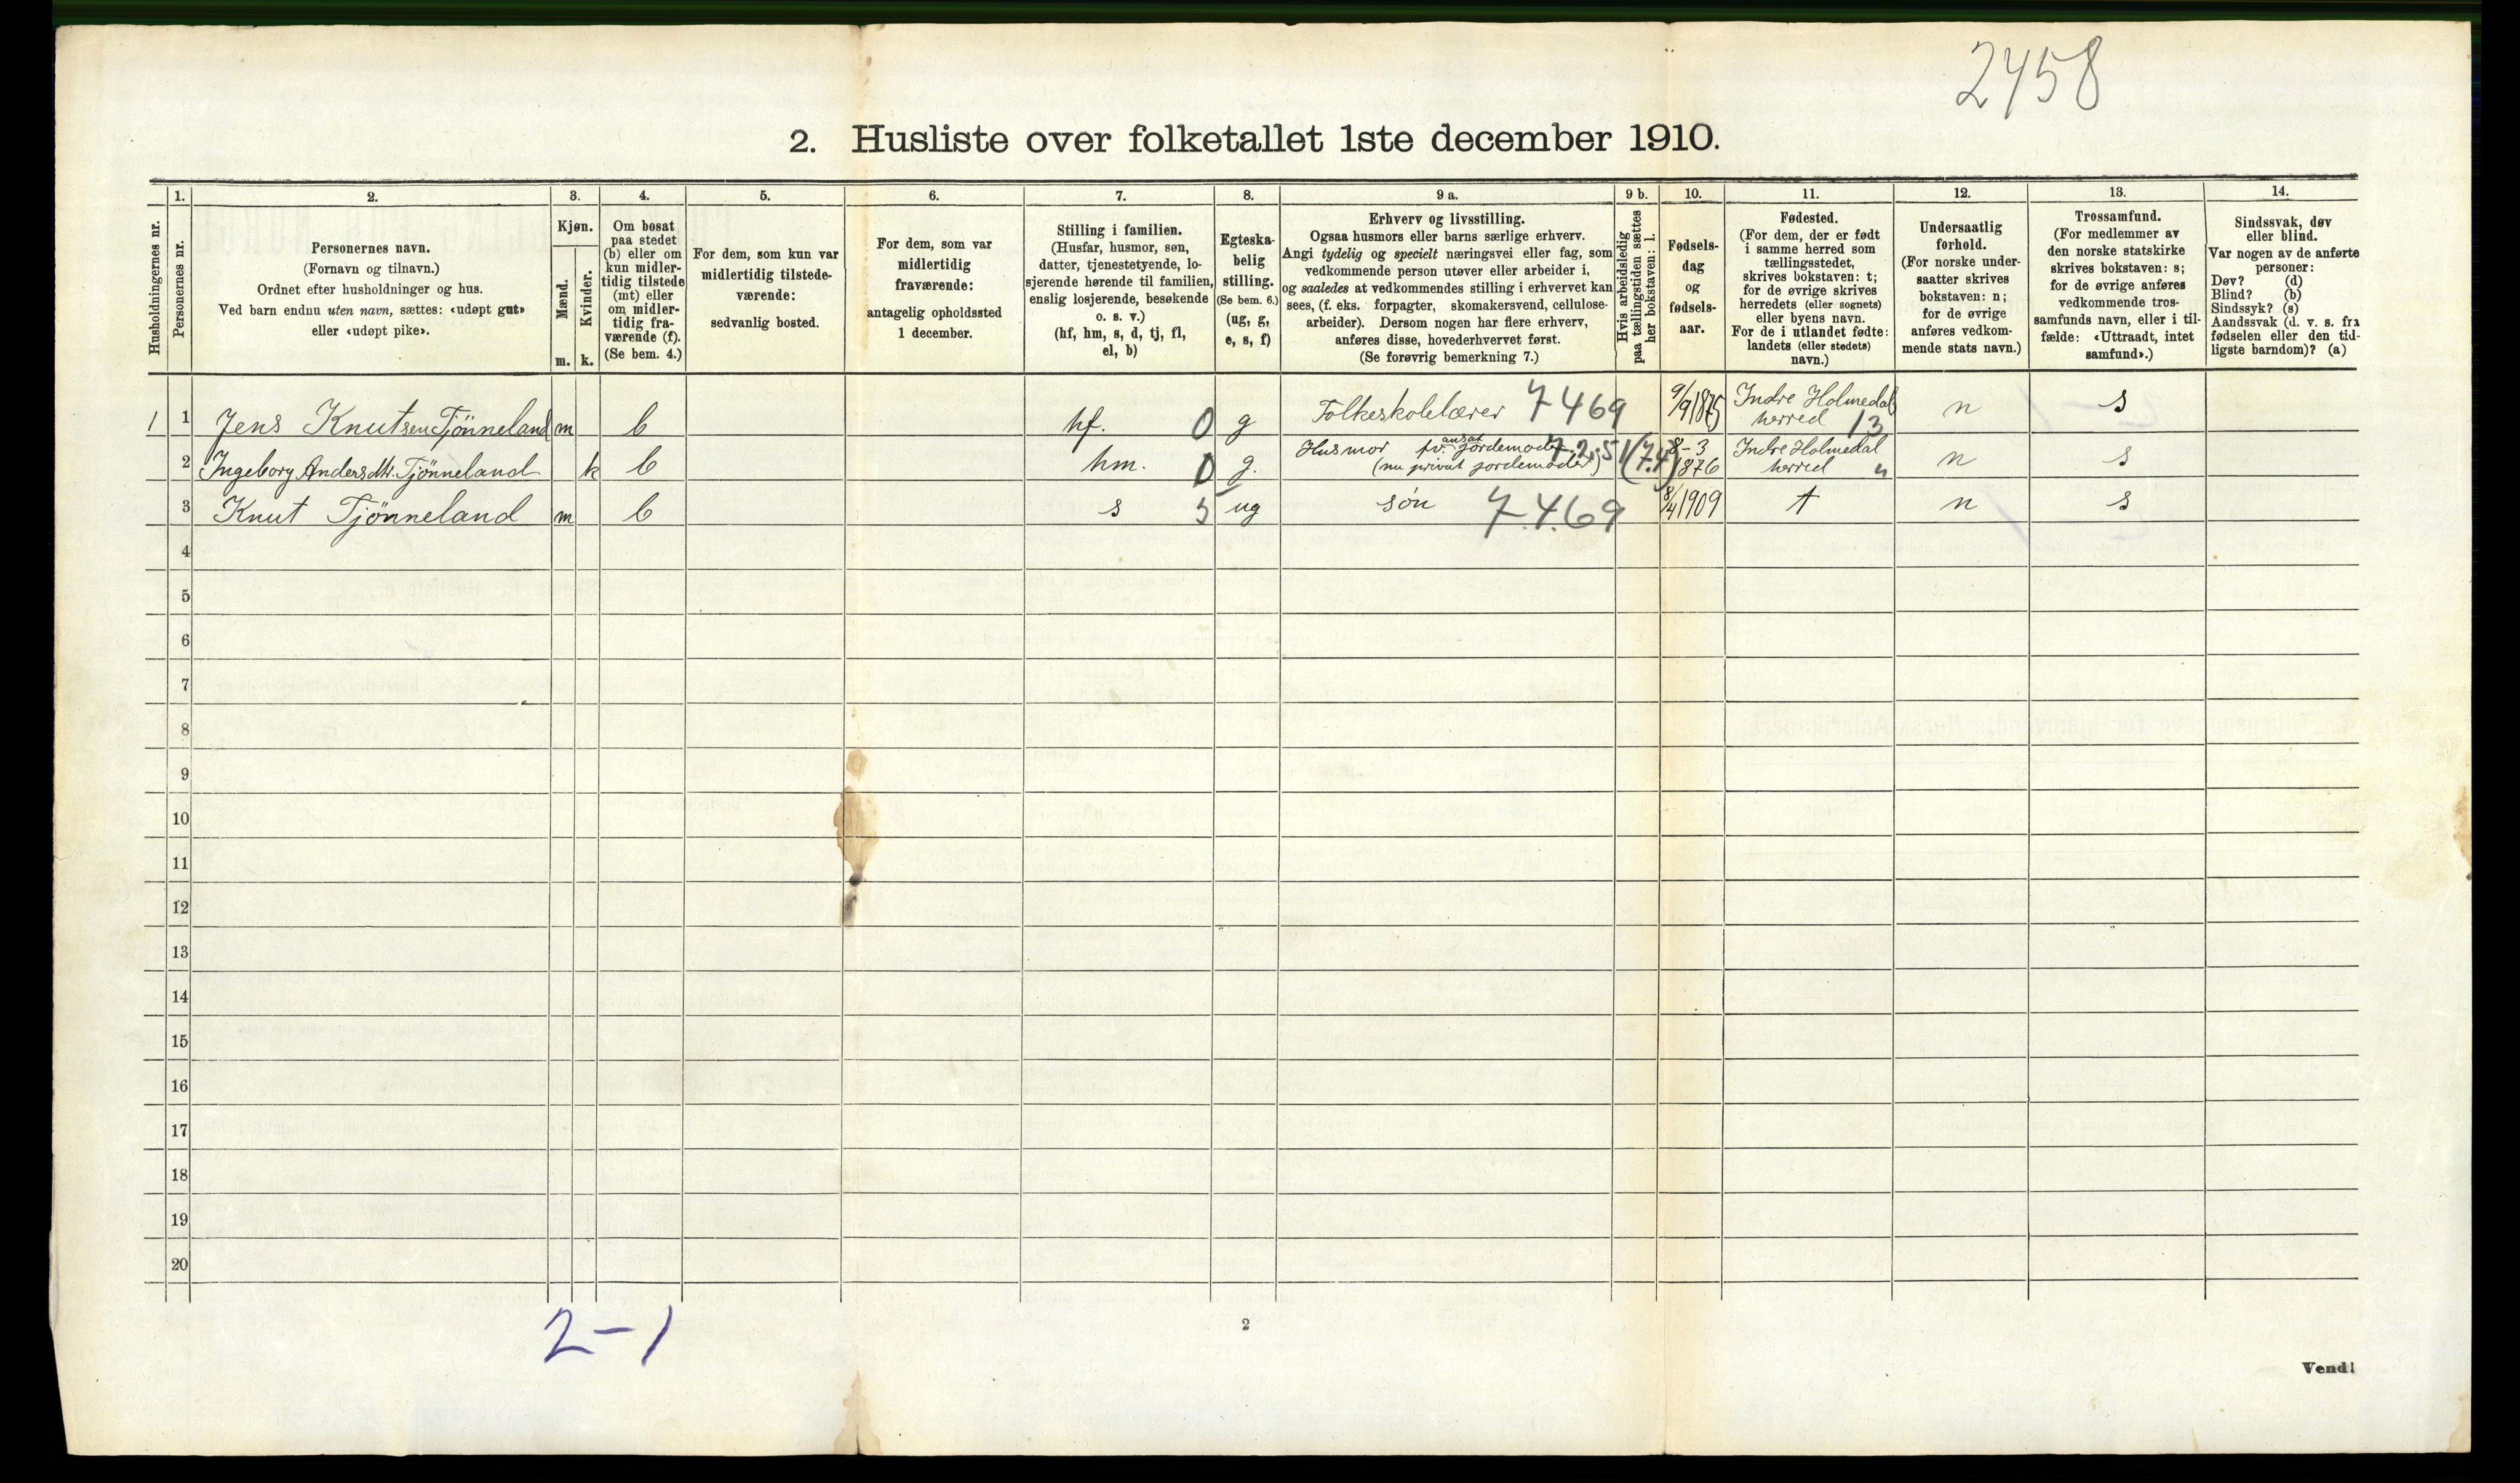 2458
2. Husliste over folketallet 1ste december 1910.
Husholdningernes nr.
1.
Personernes nr.
2.
Personernes navn.
(Fornavn og tilnavn.)
Ordnet efter husholdninger og hus.
Ved barn endnu uten navn, sættes: «udøpt gut»
eller «udøpt pike».
3.
Kjøn.
Mænd.
m.
Kvinder.
k.
4.
Om bosat
paa stedet
(b) eller om
kun midler-
tidig tilstede
(mt) eller
om midler-
tidig fra-
værende (f).
(Se bem. 4.)
5.
For dem, som kun var
midlertidig tilstede-
værende:
sedvanlig bosted.
6.
For dem, som var
midlertidig
fraværende:
antagelig opholdssted
1 december.
7.
Stilling i familien.
(Husfar, husmor, søn,
datter, tjenestetyende, lo-
sjerende hørende til familien,
enslig losjerende, besøkende
o. s. v.)
(hf, hm, s, d, tj, fl,
el, b)
8.
Egteska-
belig
stilling.
(Se bem. 6.)
(ug, g,
e, s, f)
9 a.
Erhverv og livsstilling.
Ogsaa husmors eller barns særlige erhverv.
Angi tydelig og specielt næringsvei eller fag, som
vedkommende person utøver eller arbeider i,
og saaledes at vedkommendes stilling i erhvervet kan
sees, (f. eks. forpagter, skomakersvend, cellulose-
arbeider). Dersom nogen har flere erhverv,
anføres disse, hovederhvervet først.
(Se forøvrig bemerkning 7.)
9 b.
Hvis arbeidsledig
paa tællingstiden sættes
her bokstaven: l.
10.
Fødsels-
dag
og
fødsels-
aar.
11.
Fødested.
(For dem, der er født
i samme herred som
tællingsstedet,
skrives bokstaven: t;
for de øvrige skrives
herredets (eller sognets)
eller byens navn.
For de i utlandet fødte:
landets (eller stedets)
navn.)
12.
Undersaatlig
forhold.
(For norske under-
saatter skrives
bokstaven: n;
for de øvrige
anføres vedkom-
mende stats navn.)
13.
Trossamfund.
(For medlemmer av
den norske statskirke
skrives bokstaven: s;
for de øvrige anføres
vedkommende tros-
samfunds navn, eller i til-
fælde: «Uttraadt, intet
samfund».)
14.
Sindssvak, døv
eller blind.
Var nogen av de anførte
personer:
Døv? (d)
Blind? (b)
Sindssyk? (s)
Aandssvak (d. v. s. fra
fødselen eller den tid-
ligste barndom)? (a)
1 1 Jens Knutsen Tjönneland m b hf. 0 g Folkeskolelærer 7469 9/9 1875 Indre Holmedal herred 13 n s
2 Ingeborg Andersdtr. Tjönneland k b hm. 0 g. Husmor fv. ansat jordemoder (nu privat jordemoder) 7.2.51 (7.4) 8-3 1876 Indre Holmedal herred n s
3 Knut Tjönneland m b s 5 ug søn 7.4.69 8/4 1909 t n s
4
5
6
7
8
9
10
11
12
13
14
15
16
17
18
19
20
2-1
2
Vend!